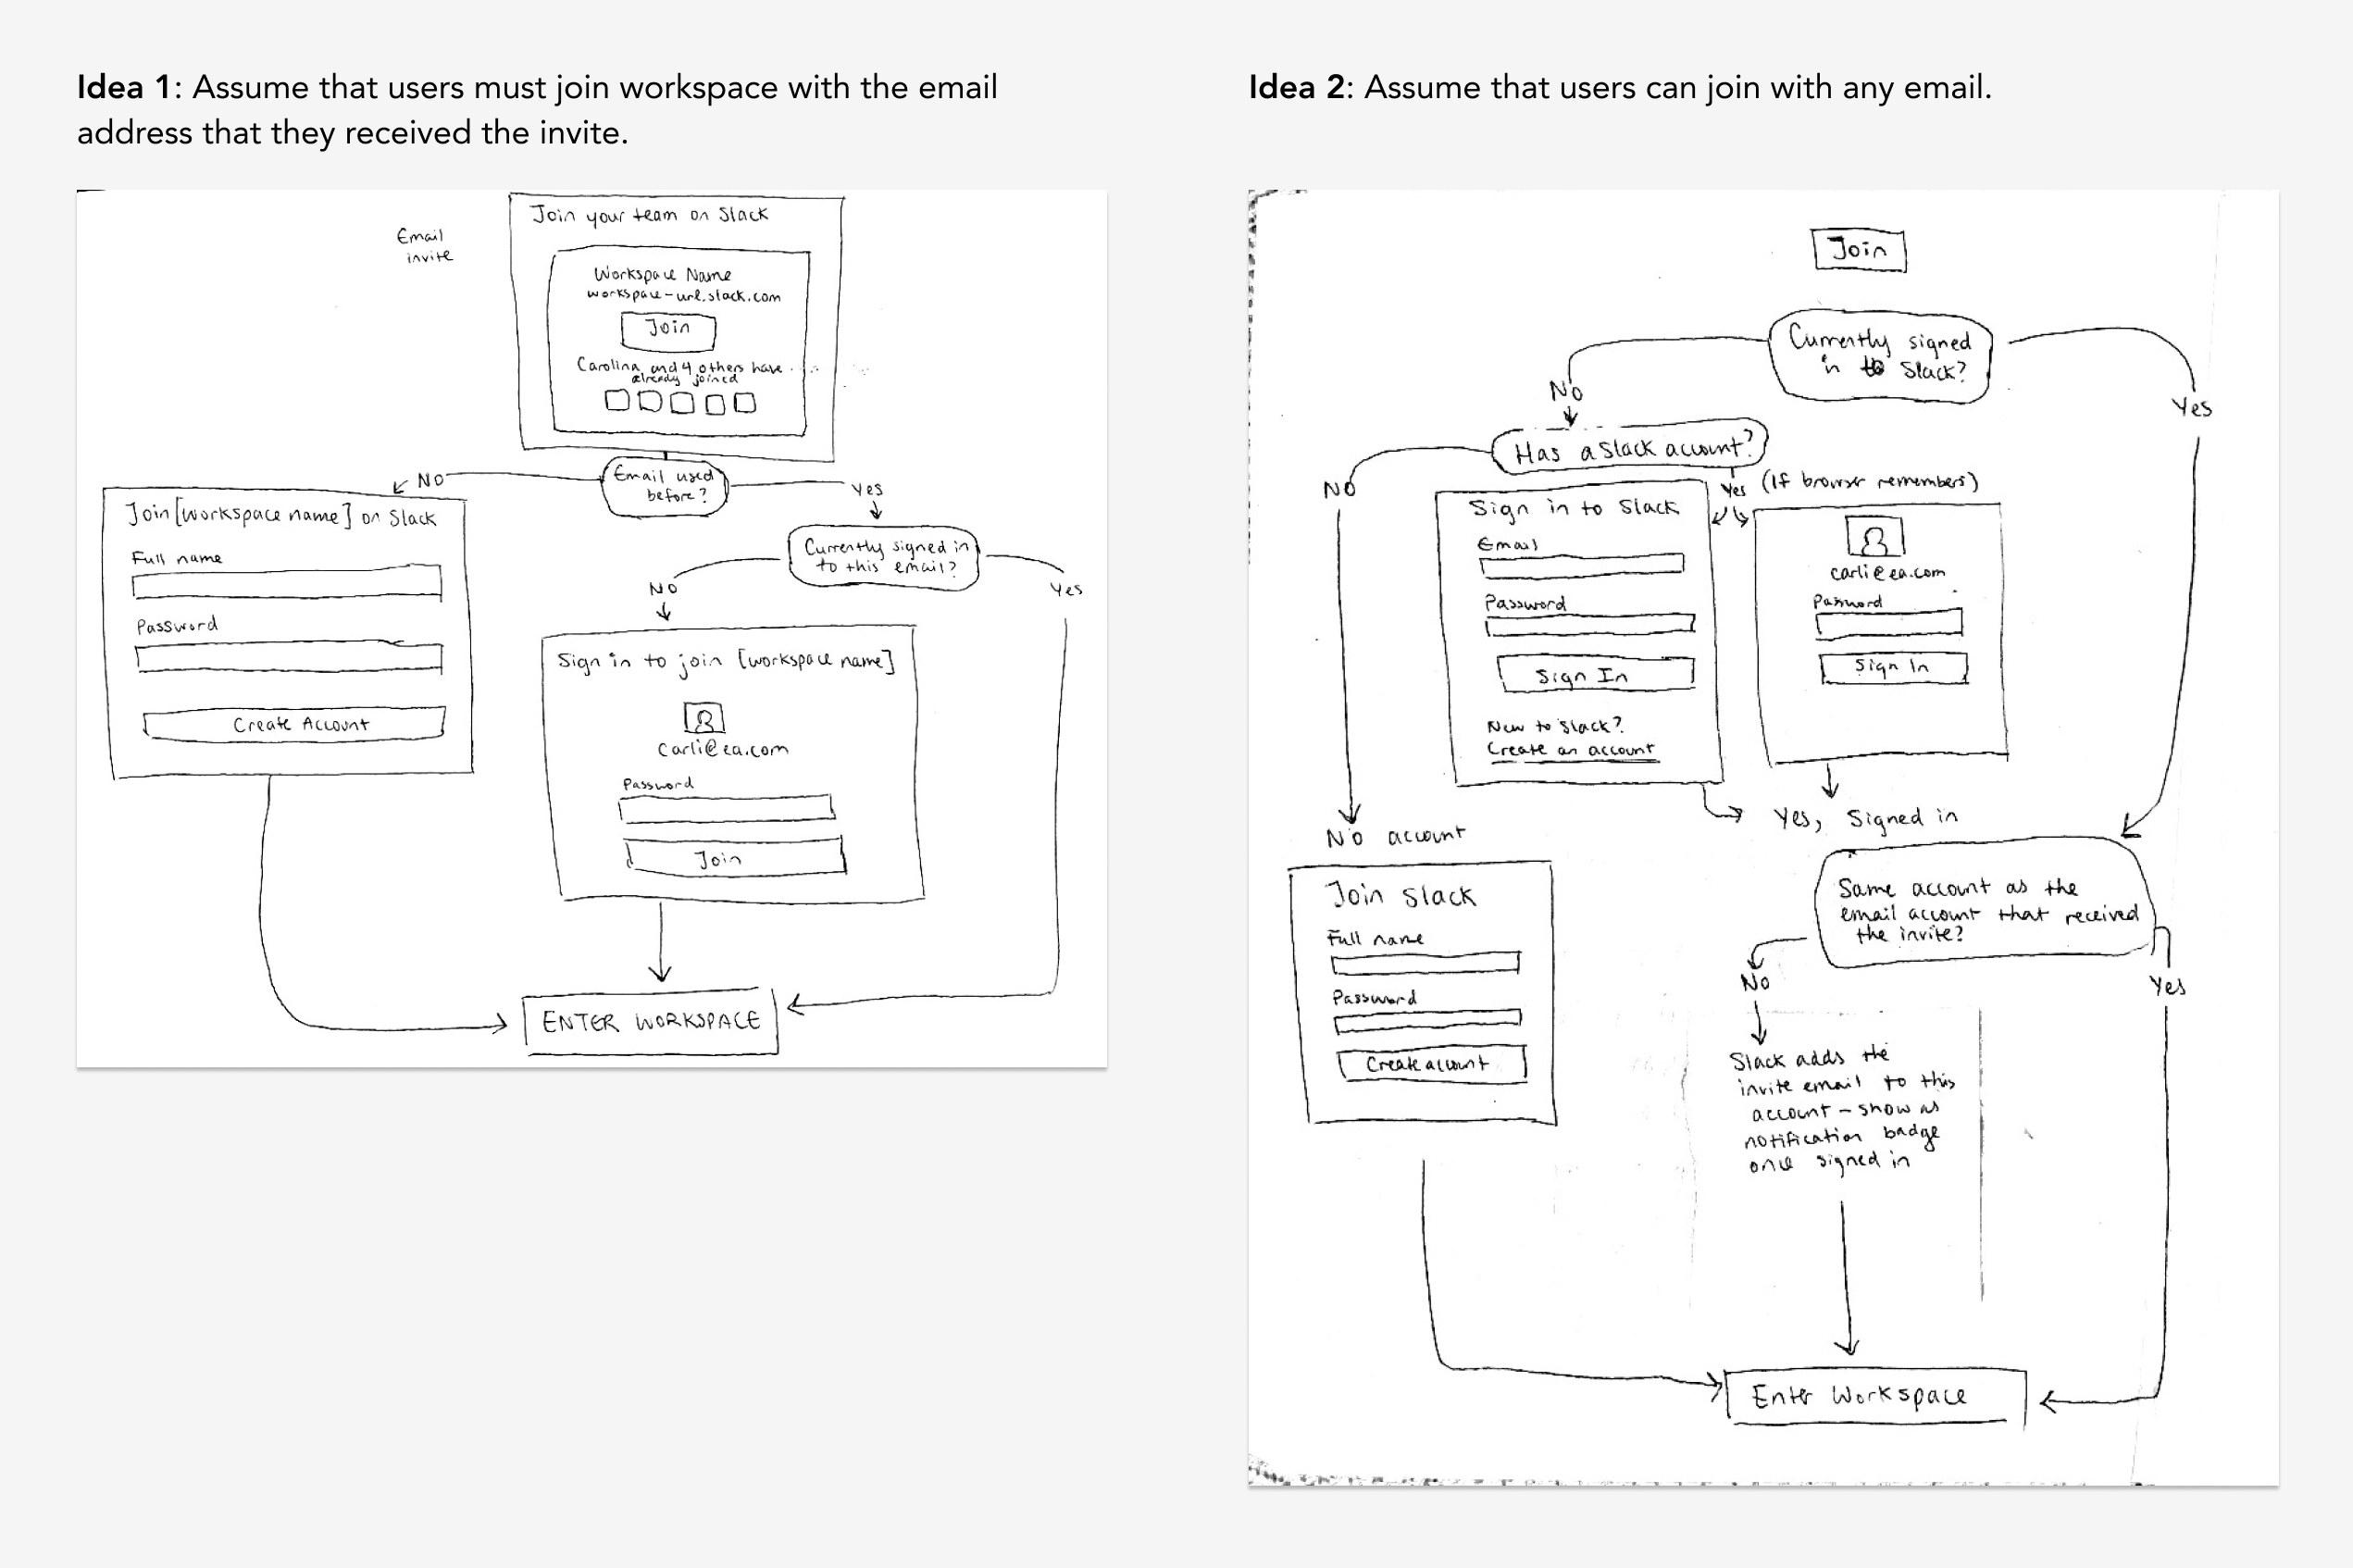 Idea 1: Assume that users must join workspace with the email
address that they received the invite.
Email
invite
Join your team on Slack
Workspace Name
workspace-url.slack.com
Join
Carolina and 4 others have
already joined
Email used
before?
NO
Yes
Join [workspace name] on Slack
Full name
Password
Create Account
Currently signed in
to this email?
NO
Yes
Sign in to join [workspace name]
carli@ea.com
Password
Join
ENTER WORKSPACE
Idea 2: Assume that users can join with any email.
Join
Currently signed
in to Slack?
No
Yes
Has a Slack account?
NO
Yes (If browser remembers)
Sign in to Slack
Email
Password
Sign In
New to Slack?
Create an account
carli@ea.com
Password
Sign In
Yes, Signed in
No account
Join Slack
Full name
Password
Create account
Same account as the
email account that received
the invite?
No
Yes
Slack adds the
invite email to this
account - show as
notification badge
once signed in
Enter Workspace